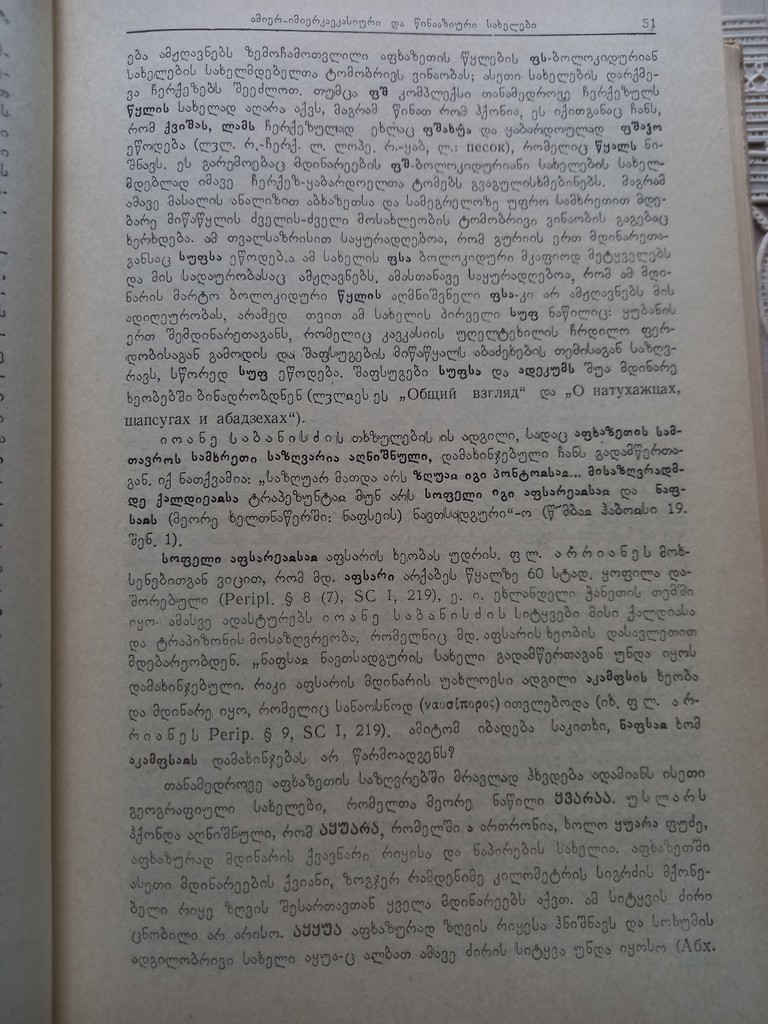 ამიერ-იმიერკავკასიური და წინააზიური სახელები 51
ება ამჟღავნებს ზემოჩამოთვლილი აფხაზეთის წყლების ფს-ბოლოკიდურიან
სახელების სახელმდებელთა ტომობრივს ვინაობას; ასეთი სახელების დარქმე-
ვა ჩერქეზებს შეეძლოთ. თუმცა ფშ კომპლექსი თანამედროვე ჩერქეზულს
წყლის სახელად აღარა აქვს, მაგრამ წინათ რომ ჰქონია, ეს იქითგანაც ჩანს,
რომ ქვიშას, ლამს ჩერქეზულად ეხლაც ფშახუა და ყაბარდოულად ფშაჴო
ეწოდება (ლჳლ. რ.-ჩერქ. ლ. ლოპე. რ.-ყაბ, ლ.: песок), რომელიც წყალს ნი-
შნავს. ეს გარემოებაც მდინარეების ფშ-ბოლოკიდურიანი სახელების სახელ-
მდებლად იმავე ჩერქეზ-ყაბარდოელთა ტომებს გვაგულისხმებინებს. მაგრამ
ამავე მასალის ანალიზით აბხაზეთსა და სამეგრელოზე უფრო სამხრეთით მდე-
ბარე მიწაწყლის ძველის-ძველი მოსახლეობის ტომობრივი ვინაობის გაგებაც
ხერხდება. ამ თვალსაზრისით საყურადღებოა, რომ გურიის ერთ მდინარეთა-
განსაც სუფსა ეწოდება.ა ამ სახელის ფსა ბოლოკიდური მკაფიოდ მეტყველებს
და მის სადაურობასაც ამჟღავნებს. ამასთანავე საყურადღებოა, რომ ამ მდი-
ნარის მარტო ბოლოკიდური წყლის აღმნიშვნელი ფსა-კი არ ამჟღავნებს მის
ადიღეურობას, არამედ თვით ამ სახელის პირველი სუფ ნაწილიც: ყუბანის
ერთ შემდინარეთაგანს, რომელიც კავკასიის უღელტეხილის ჩრდილო ფერ-
დობისაგან გამოდის და შაფსუგების მიწაწყალს აბაძეხების თემისაგან საზღვ-
რავს, სწორედ სუფ ეწოდება. შაფსუგები სუფსა და ადეკუმს შუა მდინარე
ხეობებში ბინადრობდნენ (ლჳლჲეს ეს „Общий взгляд“ და „О натухажцах,
шапсугах и абадзехах“).
იოანე საბანისძის თხზულების ის ადგილი, სადაც აფხაზეთის სამ-
თავროს სამხრეთი საზღვარია აღნიშნული, დამახინჯებული ჩანს გადამწერთა-
გან. იქ ნათქვამია: „საზღუარ მათდა არს ზღუაჲ იგი პონტოჲსაჲ... მისაზღვრადმ-
დე ქალდიეაჲსა ტრაპეზუნტაჲ მუნ არს სოფელი იგი აფსარეაჲსაჲ და ნაფ-
საჲს (მეორე ხელთნაწერში: ნაფსეის) ნავთსადგური“-ო (წ~მბაჲ ჰაბოჲსი 19.
შენ. 1).
სოფელი აფსარეაჲსაჲ აფსარის ხეობას უდრის. ფლ. არრიანეს მოხ-
სენებითგან ვიცით, რომ მდ. აფსარი არქაბეს წყალზე 60 სტად. ყოფილა და-
შორებული (Peripl. § 8 (7), SC I, 219), ე. ი. ეხლანდელი ჭანეთის თემში
იყო. ამასვე ადასტურებს იოანე საბანისძის სიტყვები მისი ქალდიასა
და ტრაპიზონის მოსაზღვრეობა, რომელნიც მდ. აფსარის ხეობის დასავლეთით
მდებარეობდნენ. „ნაფსაჲ ნავთსადგურის სახელი გადამწერთაგან უნდა იყოს
დამახინჯებული. რაკი აფსარის მდინარის უახლოესი ადგილი აკამფსის ხეობა
და მდინარე იყო, რომელიც სანაოსნოდ (ναυσίπορος) ითვლებოდა (იხ. ფლ. არ-
რიანეს Perip. § 9, SC I, 219). ამიტომ იბადება საკითხი, ნაფსაჲ ხომ
აკამფსაჲს დამახინჯებას არ წარმოადგენს?
თანამედროვე აფხაზეთის საზღვრებში მრავლად ჰხვდება ადამიანს ისეთი
გეოგრაფიული სახელები, რომელთა მეორე ნაწილი ყვარაა. უსლარს
ჰქონდა აღნიშნული, რომ აყუარა, რომელში ა ართრონია, ხოლო ყუარა ფუძე,
აფხაზურად მდინარის ქვავნარი რიყისა და ნაპირების სახელია. აფხაზეთში
ასეთი მდინარეების ქვიანი, ზოგჯერ რამდენიმე კილომეტრის სიგრძის მქონე-
ბელი რიყე ზღვის შესართავთან ყველა მდინარეებს აქვთ. ამ სიტყვის ძირი
ცნობილი არ არისო. აყყუა აფხაზურად ზღვის რიყესა ჰნიშნავს და სოხუმის
ადგილობრივი სახელი აყუა-ც ალბათ ამავე ძირის სიტყვა უნდა იყოსო (Абх.